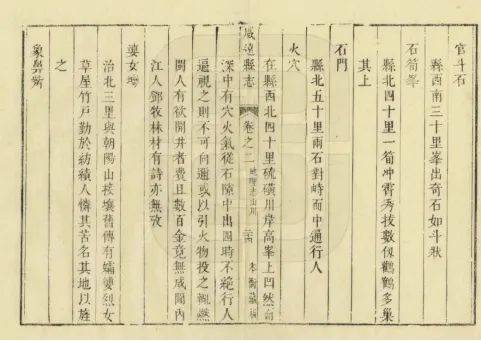 官斗石
縣西南三十里峯出奇石如斗狀
石筍峯
縣北四十里一筍冲霄秀拔數仞鸛鶴多巢
其上
石門
縣北五十里兩石對峙而中通行人
火穴
在縣西北四十里硫磺川岸高峯上凹然
威遠縣志 卷之二 地理志山川
深中有穴火氣從石隙中出四時不絶行人
逼視之則不可向邇或以引火物投之輒燃
閩人有欲開井者費且數百金竟無成陽内
江人鄧牧林材有詩亦無攷
婆女塲
治北三里與朝陽山接壤舊傳有孀雙烈女
草屋竹戸勤於紡績人憐其苦名其地以旌
之
象鼻嘴